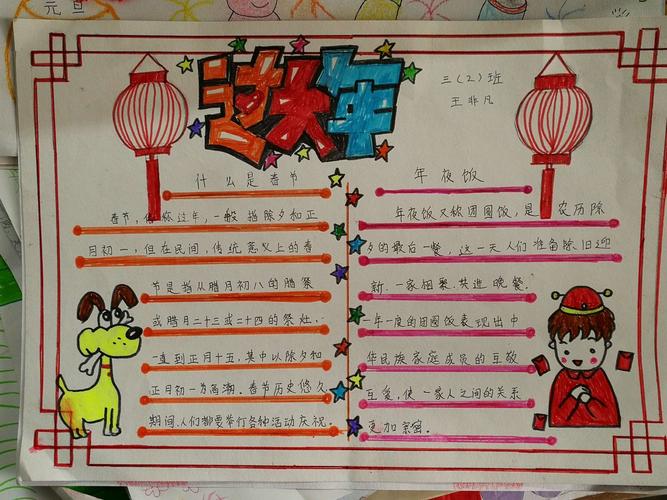 元旦
过大年
三(2)班
王非凡
什么是春节
春节,俗称过年,一般指除夕和正
月初一,但在民间,传统意义上的春
节是指从腊月初八的腊祭
或腊月二十三或二十四的祭灶,
一直到正月十五,其中以除夕和
正月初一为高潮。春节历史悠久
期间、人们都要举行各种活动庆祝。
年夜饭
年夜饭又称团圆饭,是农历除
夕的最后一餐,这一天人们准备除旧迎
新,一家相聚,共进晚餐.
一年一度的团圆饭表现出中
华民族家庭成员的互敬
互爱,使一家人之间的关系
更加紧密。